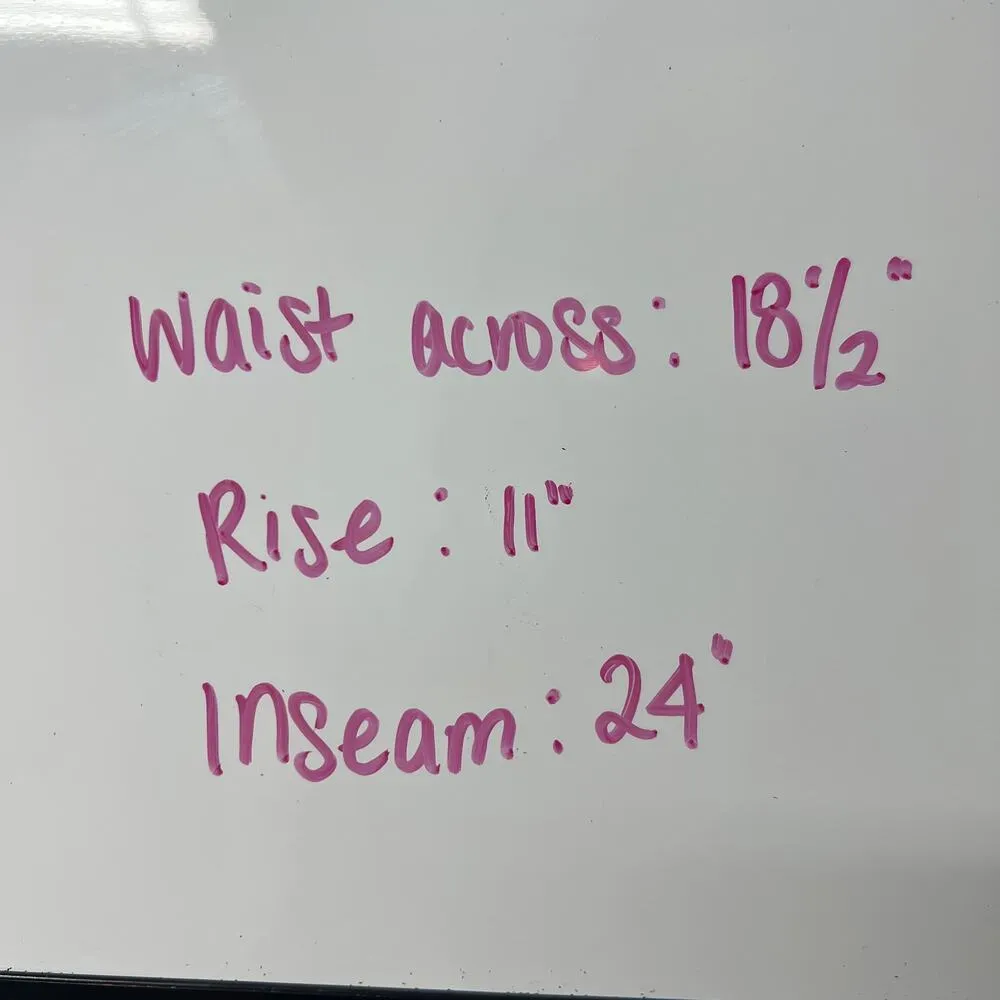 Waist across: 18 1/2"
Rise: 11"
Inseam: 24"